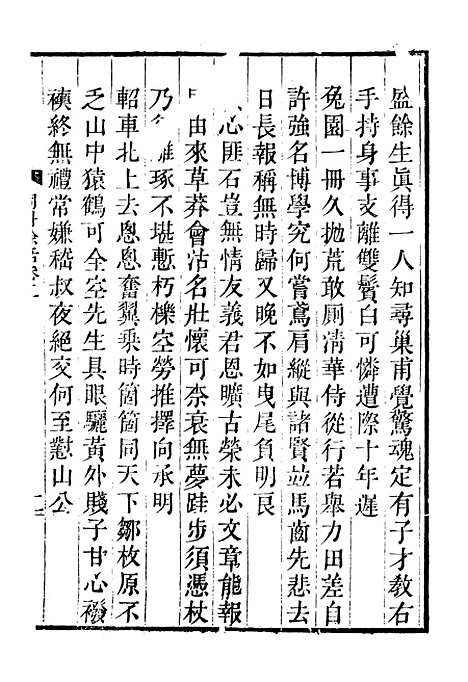 盈餘生眞得一人知尋巢甫覺驚魂定有子才敎右
手持身事支離雙鬢白可憐遭際十年遲
兔園一冊久拋荒敢厠淸華侍從行若舉力田差自
許強名博學究何嘗鳶肩縱與諸賢竝馬齒先悲去
日長報稱無時歸又晚不如曳尾負明良
心匪石豈無情友義君恩曠古榮未必文章能報
由來草莽會沽名壯懷可柰衰無夢跬步須憑杖
乃 雕琢不堪慙朽櫟空勞推擇向承明
軺車北上去恩恩奮翼乘時箇箇同天下鄒枚原不
乏山中猿鶴可全空先生具眼驪黃外賤子甘心襏
襖終無禮常嫌嵇叔夜絕交何至懟山公